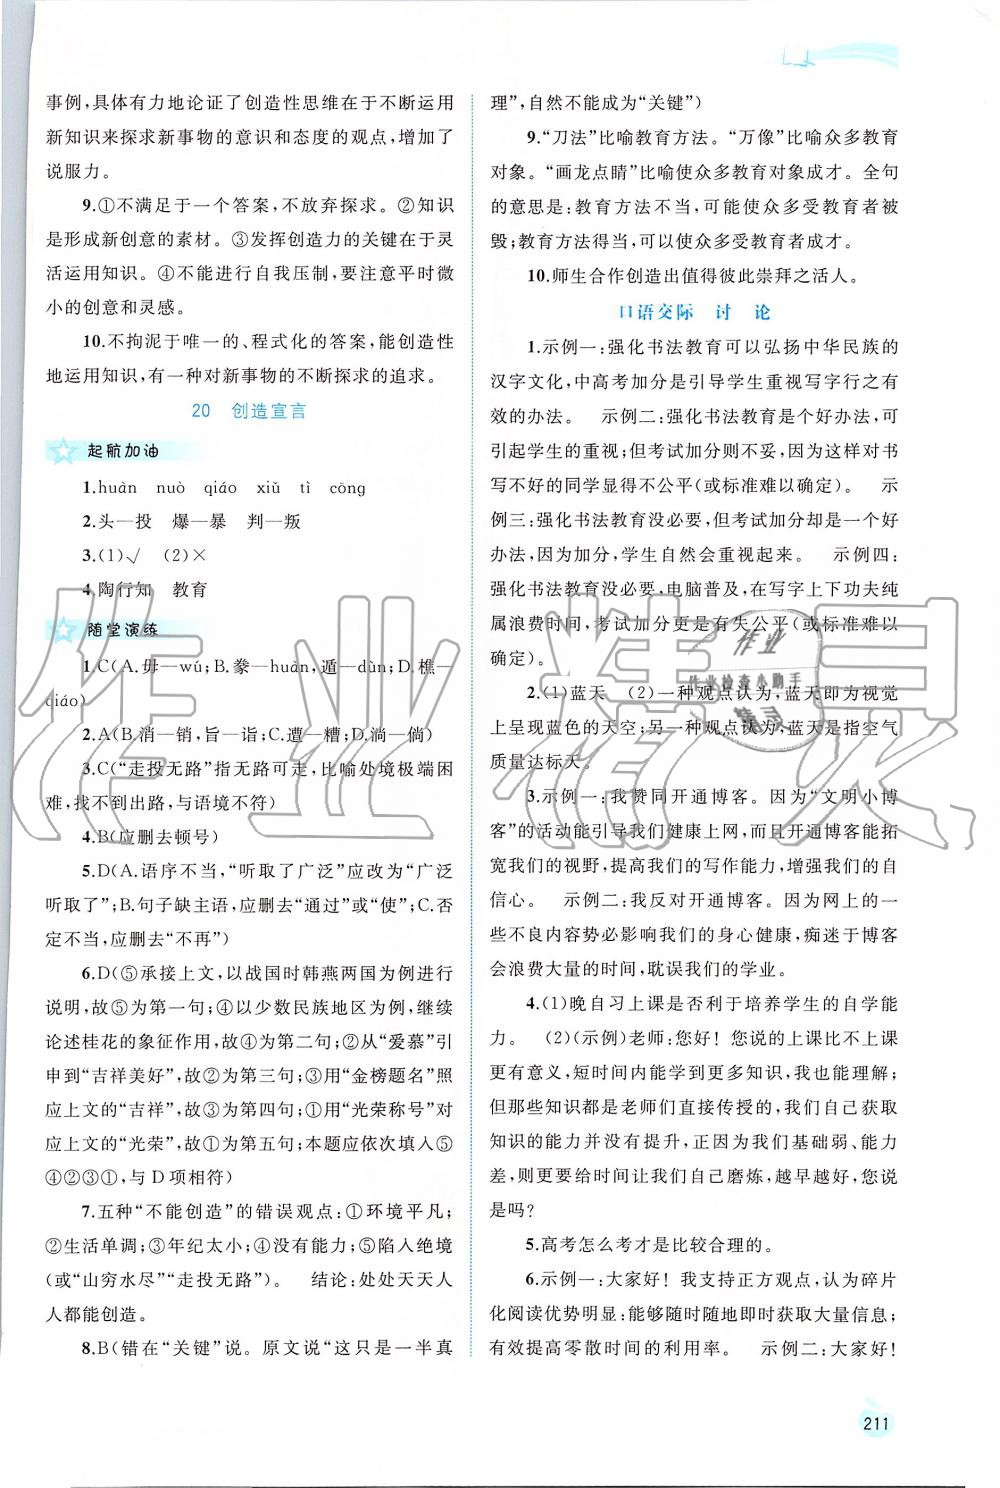 事例，具体有力地论证了创造性思维在于不断运用
新知识来探求新事物的意识和态度的观点，增加了
说服力。
9.①不满足于一个答案，不放弃探求。②知识
是形成新创意的素材。③发挥创造力的关键在于灵
活运用知识。④不能进行自我压制，要注意平时微
小的创意和灵感。
10.不拘泥于唯一的、程式化的答案，能创造性
地运用知识，有一种对新事物的不断探求的追求。
20 创造宣言
起航加油
1.huàn nuò qiáo xiǔ tì cōng
2.头—投 爆—暴 判—叛
3.(1)√ (2)×
4.陶行知 教育
随堂演练
1.C(A.毋—wú；B.豢—huàn，遁—dùn；D.樵—
qiáo)
2.A(B.消—销，旨—诣；C.遭—糟；D.淌—倘)
3.C(“走投无路”指无路可走，比喻处境极端困
难，找不到出路，与语境不符)
4.B(应删去顿号)
5.D(A.语序不当，“听取了广泛”应改为“广泛
听取了”；B.句子缺主语，应删去“通过”或“使”；C.否
定不当，应删去“不再”)
6.D(⑤承接上文，以战国时韩燕两国为例进行
说明，故⑤为第一句；④以少数民族地区为例，继续
论述桂花的象征作用，故④为第二句；②从“爱慕”引
申到“吉祥美好”，故②为第三句；③用“金榜题名”照
应上文的“吉祥”，故③为第四句；①用“光荣称号”对
应上文的“光荣”，故①为第五句；本题应依次填入⑤
④②③①，与 D 项相符)
7.五种“不能创造”的错误观点：①环境平凡；
②生活单调；③年纪太小；④没有能力；⑤陷入绝境
(或“山穷水尽”“走投无路”)。 结论：处处天天人
人都能创造。
8.B(错在“关键”说。原文说“这只是一半真
理”，自然不能成为“关键”)
9.“刀法”比喻教育方法。“万像”比喻众多教育
对象。“画龙点睛”比喻使众多教育对象成才。全句
的意思是：教育方法不当，可能使众多受教育者被
毁；教育方法得当，可以使众多受教育者成才。
10.师生合作创造出值得彼此崇拜之活人。
口语交际 讨 论
1.示例一：强化书法教育可以弘扬中华民族的
汉字文化，中高考加分是引导学生重视写字行之有
效的办法。 示例二：强化书法教育是个好办法，可
引起学生的重视；但考试加分则不妥，这样做对书
写不好的同学显得不公平(或标准难以确定)。 示
例三：强化书法教育没必要，但考试加分却是一个好
办法，因为加分，学生自然会重视起来。 示例四：
强化书法教育没必要，电脑普及，在写字上下功夫纯
属浪费时间，考试加分更是有失公平(或标准难以
确定)。
2.(1)蓝天 (2)一种观点认为，蓝天即为视觉
上呈现蓝色的天空；另一种观点认为，蓝天是指空气
质量达标天。
3.示例一：我赞同开通博客。因为“文明小博
客”的活动能引导我们健康上网，而且开通博客能拓
宽我们的视野，提高我们的写作能力，增强我们的自
信心。 示例二：我反对开通博客。因为网上的一
些不良内容势必影响我们的身心健康，痴迷于博客
会浪费大量的时间，耽误我们的学业。
4.(1)晚自习上课是否利于培养学生的自学能
力。 (2)(示例)老师：您好！您说的上课比不上课
更有意义，短时间内能学到更多知识，我也能理解；
但那些知识都是老师们直接传授的，我们自己获取
知识的能力并没有提升，正因为我们基础弱、能力
差，则更要给时间让我们自己磨炼，越早越好，您说
是吗？
5.高考怎么考才是比较合理的。
6.示例一：大家好！我支持正方观点，认为碎片
化阅读优势明显：能够随时随地即时获取大量信息；
有效提高零散时间的利用率。 示例二：大家好！
211
作业精灵
作业
作业检查小助手
精灵